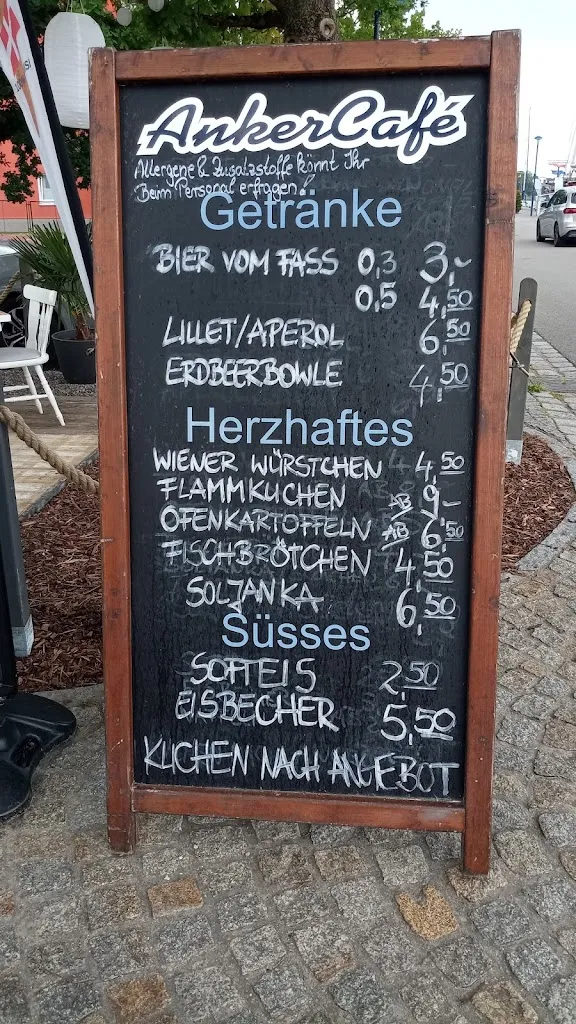 AnkerCafé
Allergene & Zusatzstoffe könnt Ihr
Beim Personal erfragen!?
Getränke
BIER VOM FASS 0,3 3,-
0,5 4,50
LILLET/APEROL 6,50
ERDBEERBOWLE 4,50
Herzhaftes
WIENER WÜRSTCHEN 4,50
FLAMMKUCHEN AB 9,-
OFENKARTOFFELN AB 6,50
FISCHBRÖTCHEN 4,50
SOLJANKA 6,50
Süsses
SOFTEIS 2,50
EISBECHER 5,50
KUCHEN NACH ANGEBOT